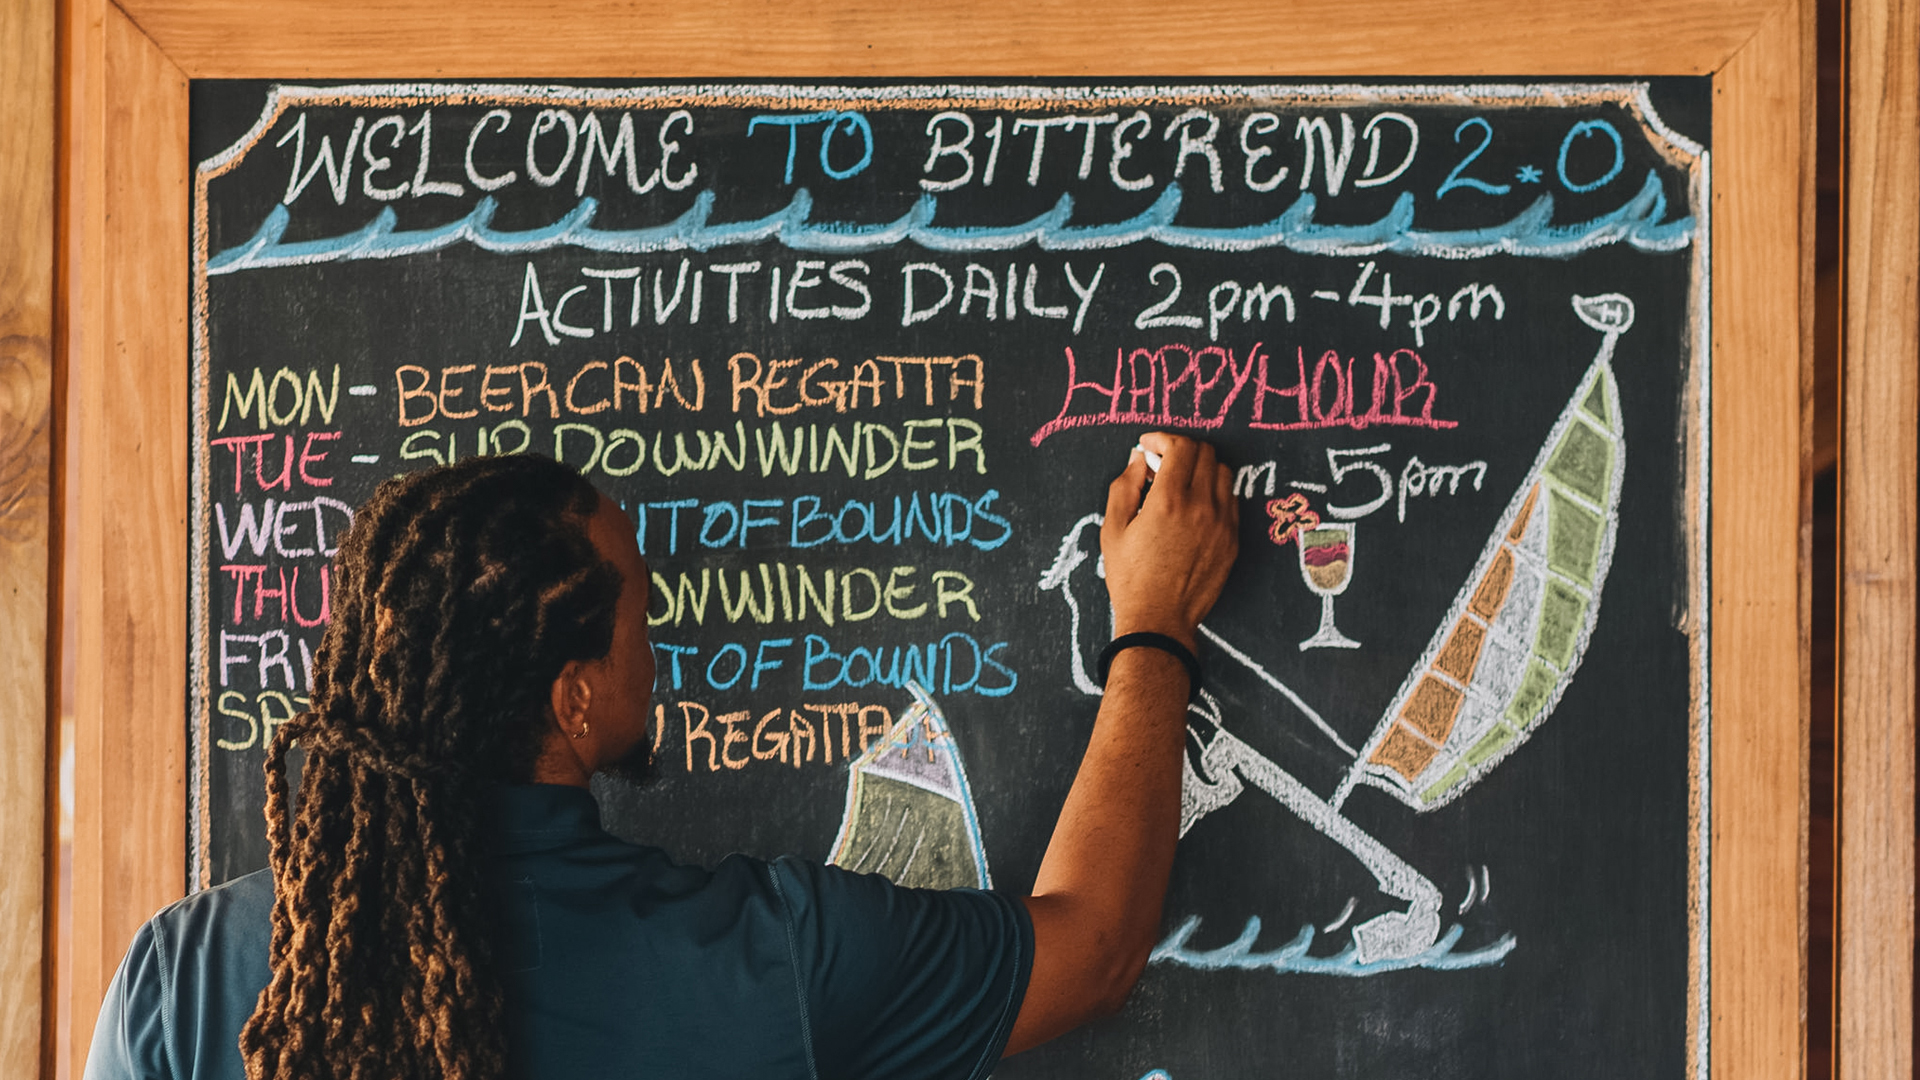 WELCOME TO BITTER END 2.0
ACTIVITIES DAILY 2pm - 4pm
MON - BEERCAN REGATTA
TUE - SUP DOWNWINDER
WED OF BOUNDS
THU
FRI OF BOUNDS
SAT REGATTA
HAPPY HOUR
- 5pm
H